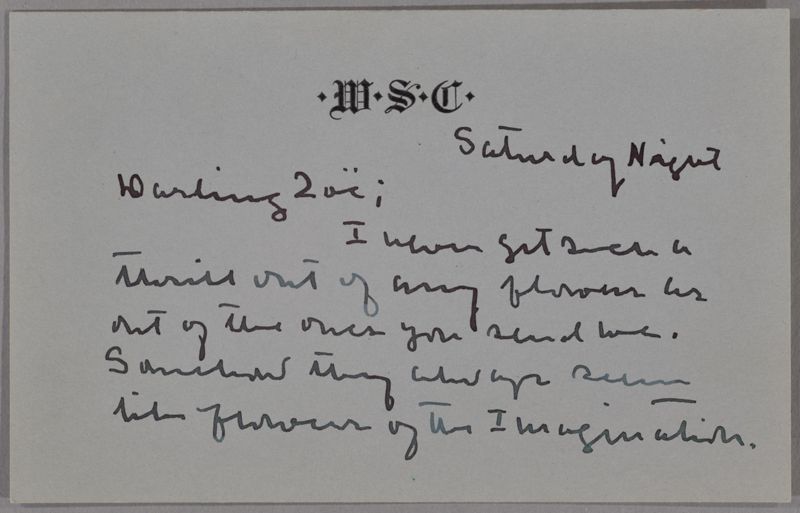 ·W·S·C·
Saturday Night
Darling Zoë;
I never get such a
thrill out of any flowers as
out of the ones you send me.
Somehow they always seem
like flowers of the Imagination.